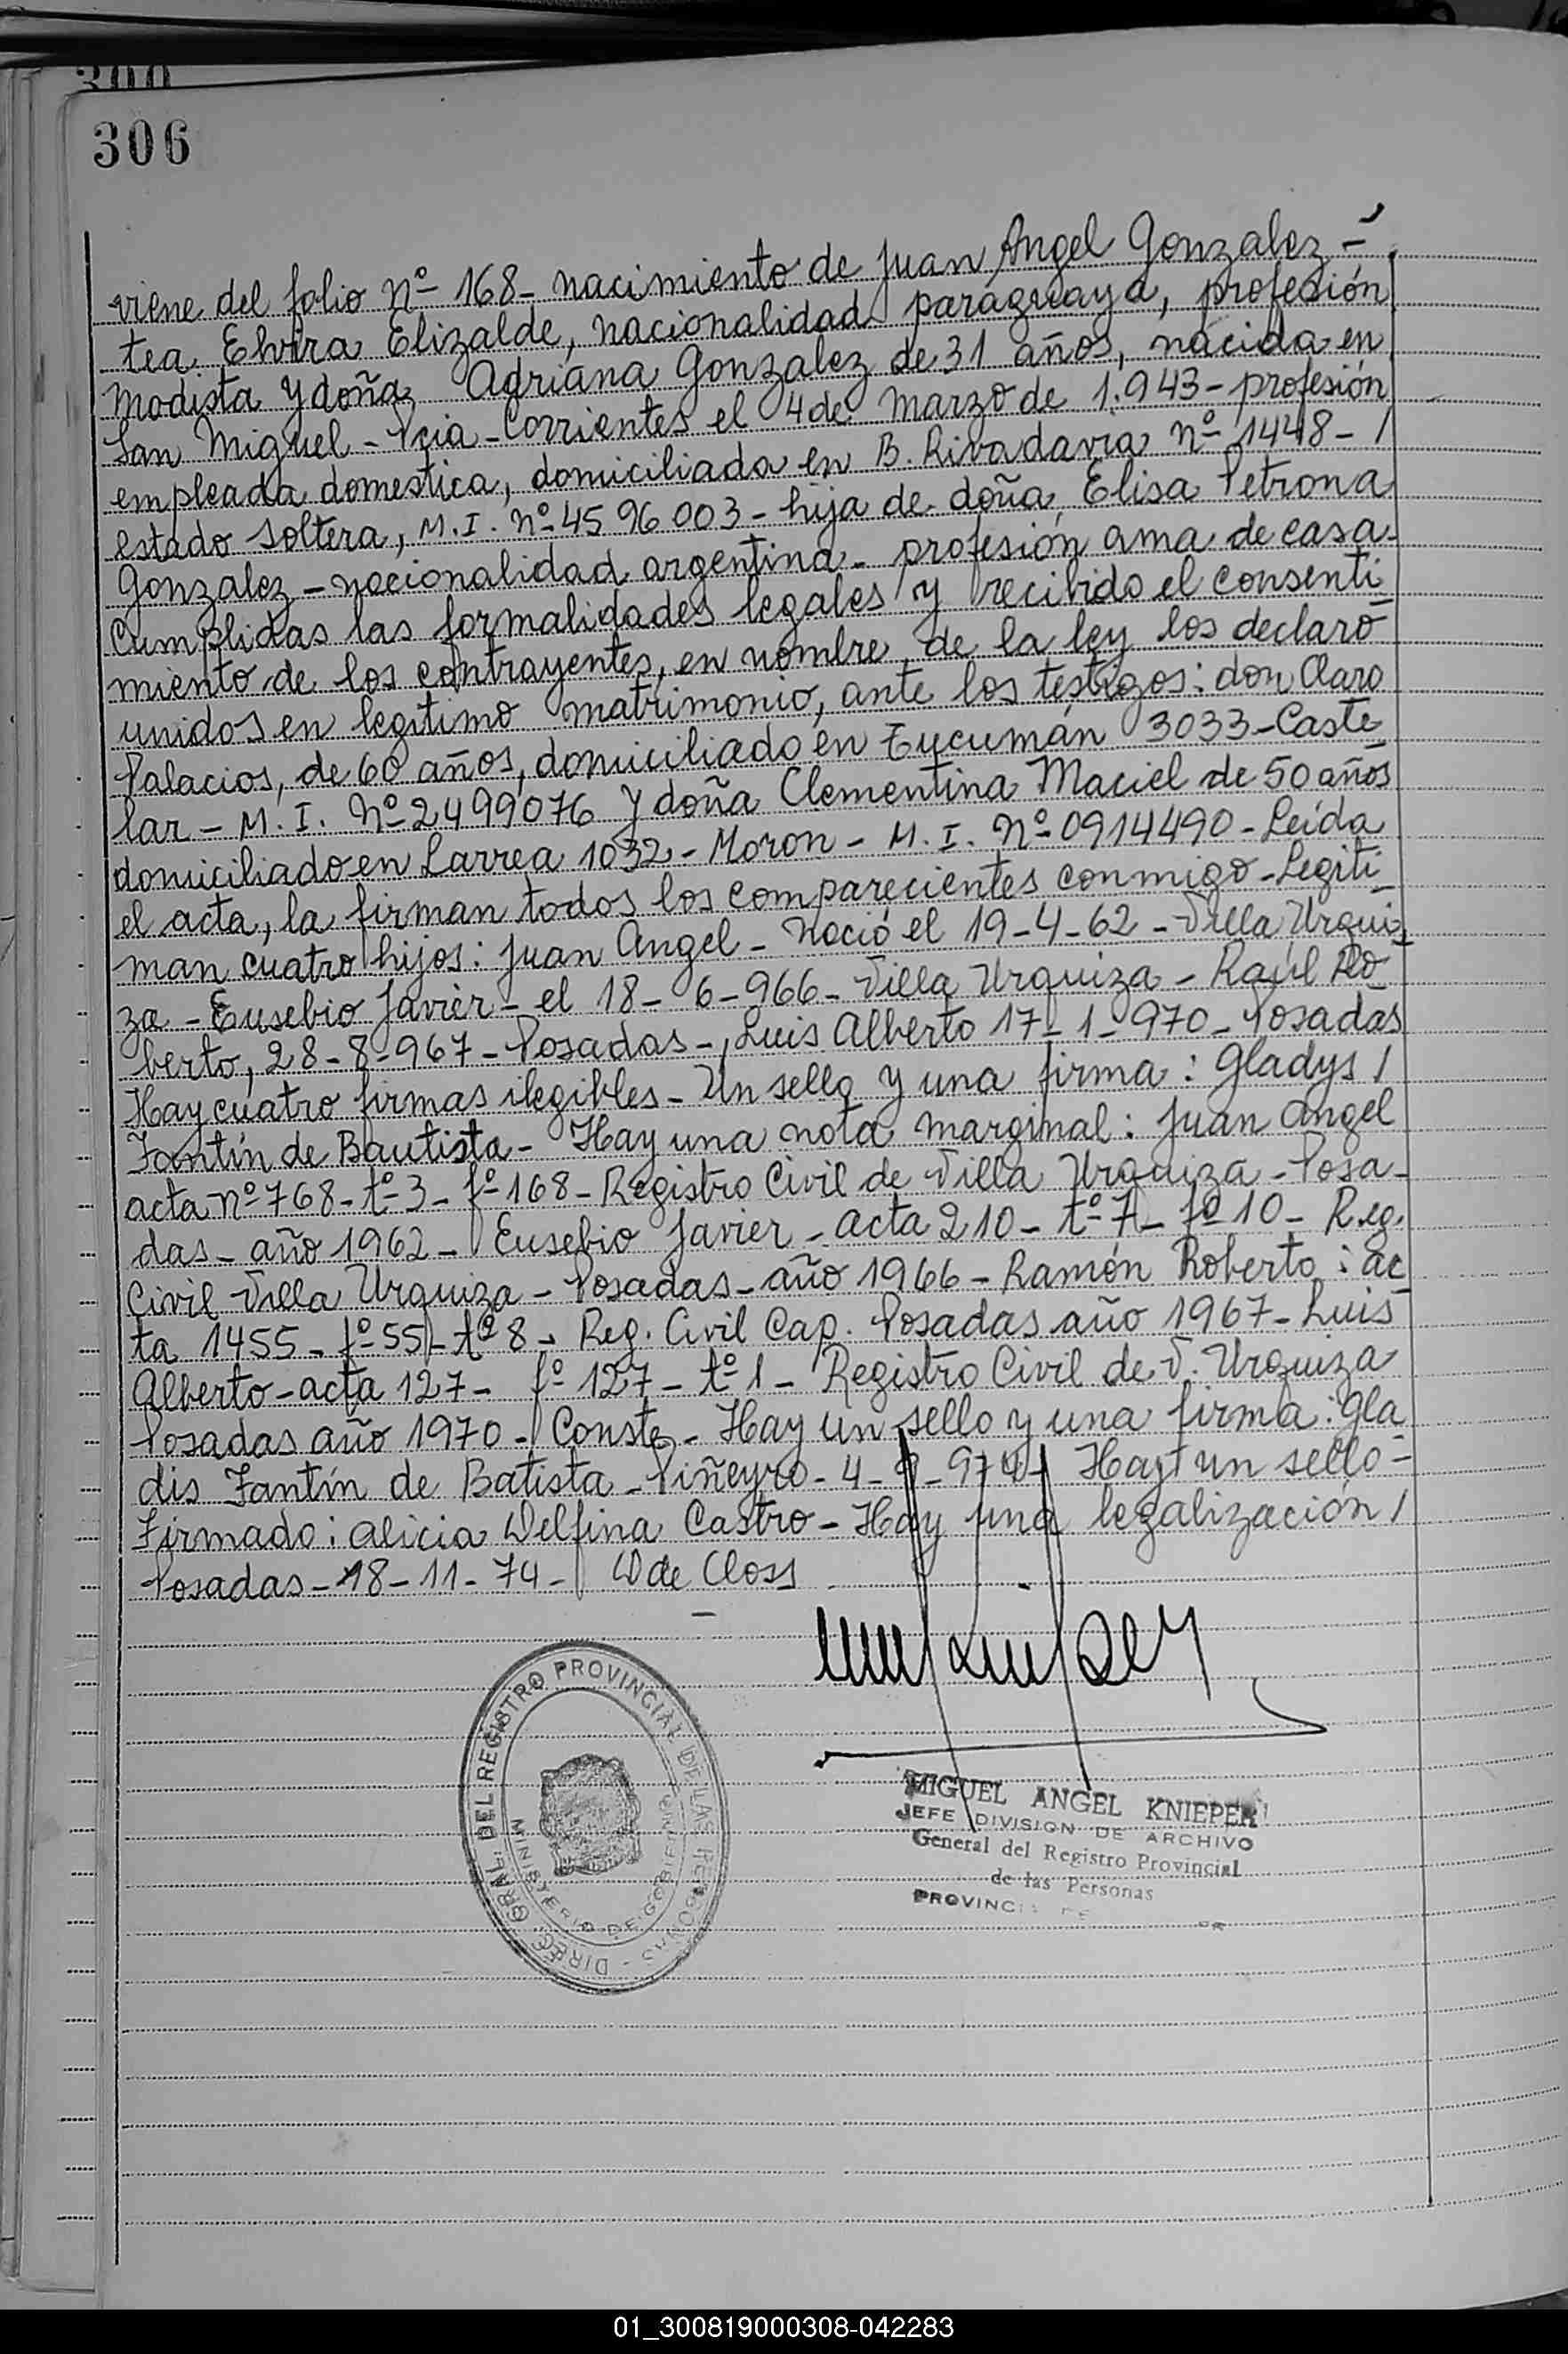 300
306
viene del folio Nº 168- nacimiento de Juan Angel Gonzalez -
tea Elvira Elizalde, nacionalidad paraguaya, profesión
modista y doña Adriana Gonzalez de 31 años, nacida en
San Miguel - Pcia - Corrientes el 4 de Marzo de 1.943 - profesión
empleada domestica, domiciliada en B. Rivadavia Nº 1448 - /
estado soltera, M.I. Nº 4596003 - hija de doña Elisa Petrona
Gonzalez - nacionalidad argentina - profesión ama de casa.
Cumplidas las formalidades legales y recibido el consenti-
miento de los contrayentes, en nombre de la ley los declaro
unidos en legitimo matrimonio, ante los testigos: don Claro
Palacios, de 60 años, domiciliado en Tucumán 3033 - Caste-
lar - M.I. Nº 2499076 y doña Clementina Maciel de 50 años
domiciliado en Larrea 1032 - Moron - M.I. Nº 0914490 - Leída
el acta, la firman todos los comparecientes conmigo - Legiti-
man cuatro hijos: Juan Angel - Nació el 19-4-62 - Villa Urqui-
za - Eusebio Javier - el 18-6-966 - Villa Urquiza - Raúl Ro-
berto, 28-8-967 - Posadas -, Luis Alberto 17-1-970 - Posadas
Hay cuatro firmas ilegibles - Un sello y una firma: Gladys /
Fantín de Bautista - Hay una nota marginal: Juan Angel
acta nº 768 - tº 3 - fº 168 - Registro Civil de Villa Urquiza - Posa-
das - año 1962 - Eusebio Javier - acta 210 - tº 7 - fº 10 - Reg.
Civil Villa Urquiza - Posadas - año 1966 - Ramón Roberto: ac-
ta 1455 - fº 55 - tº 8 - Reg. Civil Cap. Posadas año 1967 - Luis
Alberto - acta 127 - fº 127 - tº 1 - Registro Civil de V. Urquiza
Posadas año 1970 - Conste - Hay un sello y una firma: Gla-
dis Fantín de Batista - Piñeyro - 4 - 9 - 974 - Hay un sello -
Firmado: Alicia Delfina Castro - Hay una legalización /
Posadas - 18-11-74 - W de Closs
DIREC. GRAL. DEL REGISTRO PROVINCIAL DE LAS PERSONAS
MINISTERIO DE GOBIERNO
MIGUEL ANGEL KNIEPER
JEFE DIVISION DE ARCHIVO
General del Registro Provincial
de las Personas
PROVINCIA DE
01_300819000308-042283